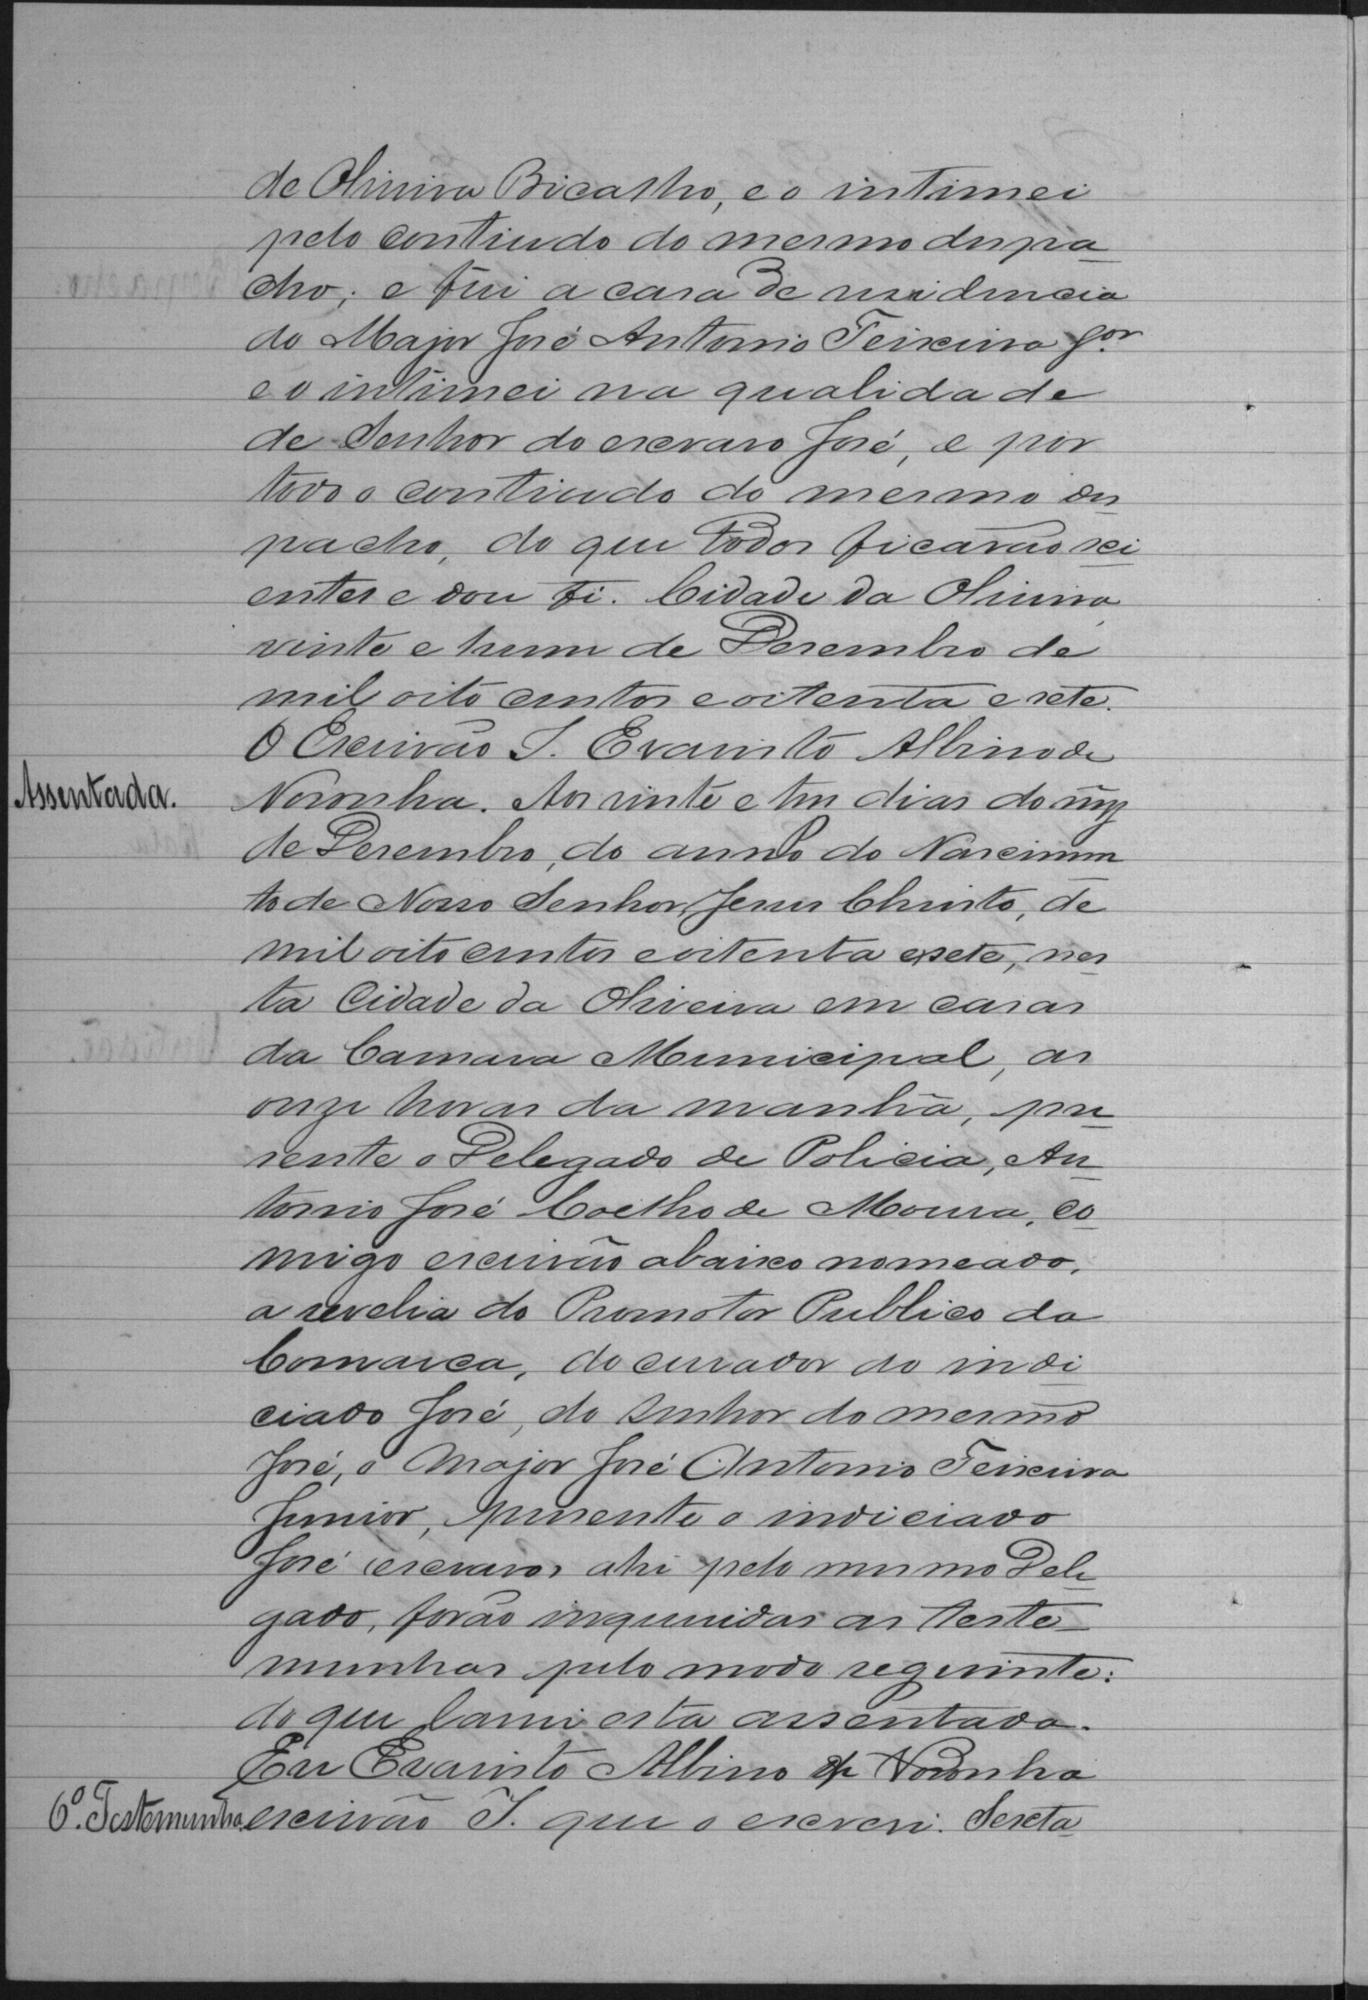 de Oliveira Bicalho, e o intimei
pelo contiudo do mesmo despa
cho; e fui a casa de residencia
do Major José Antonio Teixeira Jor
e o intimei na qualidade
de Senhor do escravo José, e por
todo o contiudo do mesmo des
pacho, do que todos ficarão sci
entes e dou fé. Cidade da Oliveira,
vinte e hum de Desembro de
mil oito centos e oitenta e sete.
O Escrivão I. Evaristo Albino de
Assentada. Noronha. Aos vinte e tres dias do mez
de Desembro, do anno do Nascimen
to de Nosso Senhor Jesus Christo, de
mil oito centos e oitenta e sete, nes
ta Cidade da Oliveira em casas
da Camara Municipal, as
onze horas da manhã, pre
sente o Delegado de Policia, An
tonio José Coelho de Moura, co
migo escrivão abaixo nomeado,
a revelia do Promotor Publico da
Comarca, do curador do indi
ciado José, do senhor do mesmo
José, o Major José Antonio Teixeira
Junior, presente o indiciado
José escravo, ahi pelo mesmo Dele
gado, forão inqueridas as teste
munhas pelo modo seguinte:
do que lavrei esta assentada.
Eu Evaristo Albino de Noronha
6ª. Testemunha. escrivão I. que o escrevi. Sexta